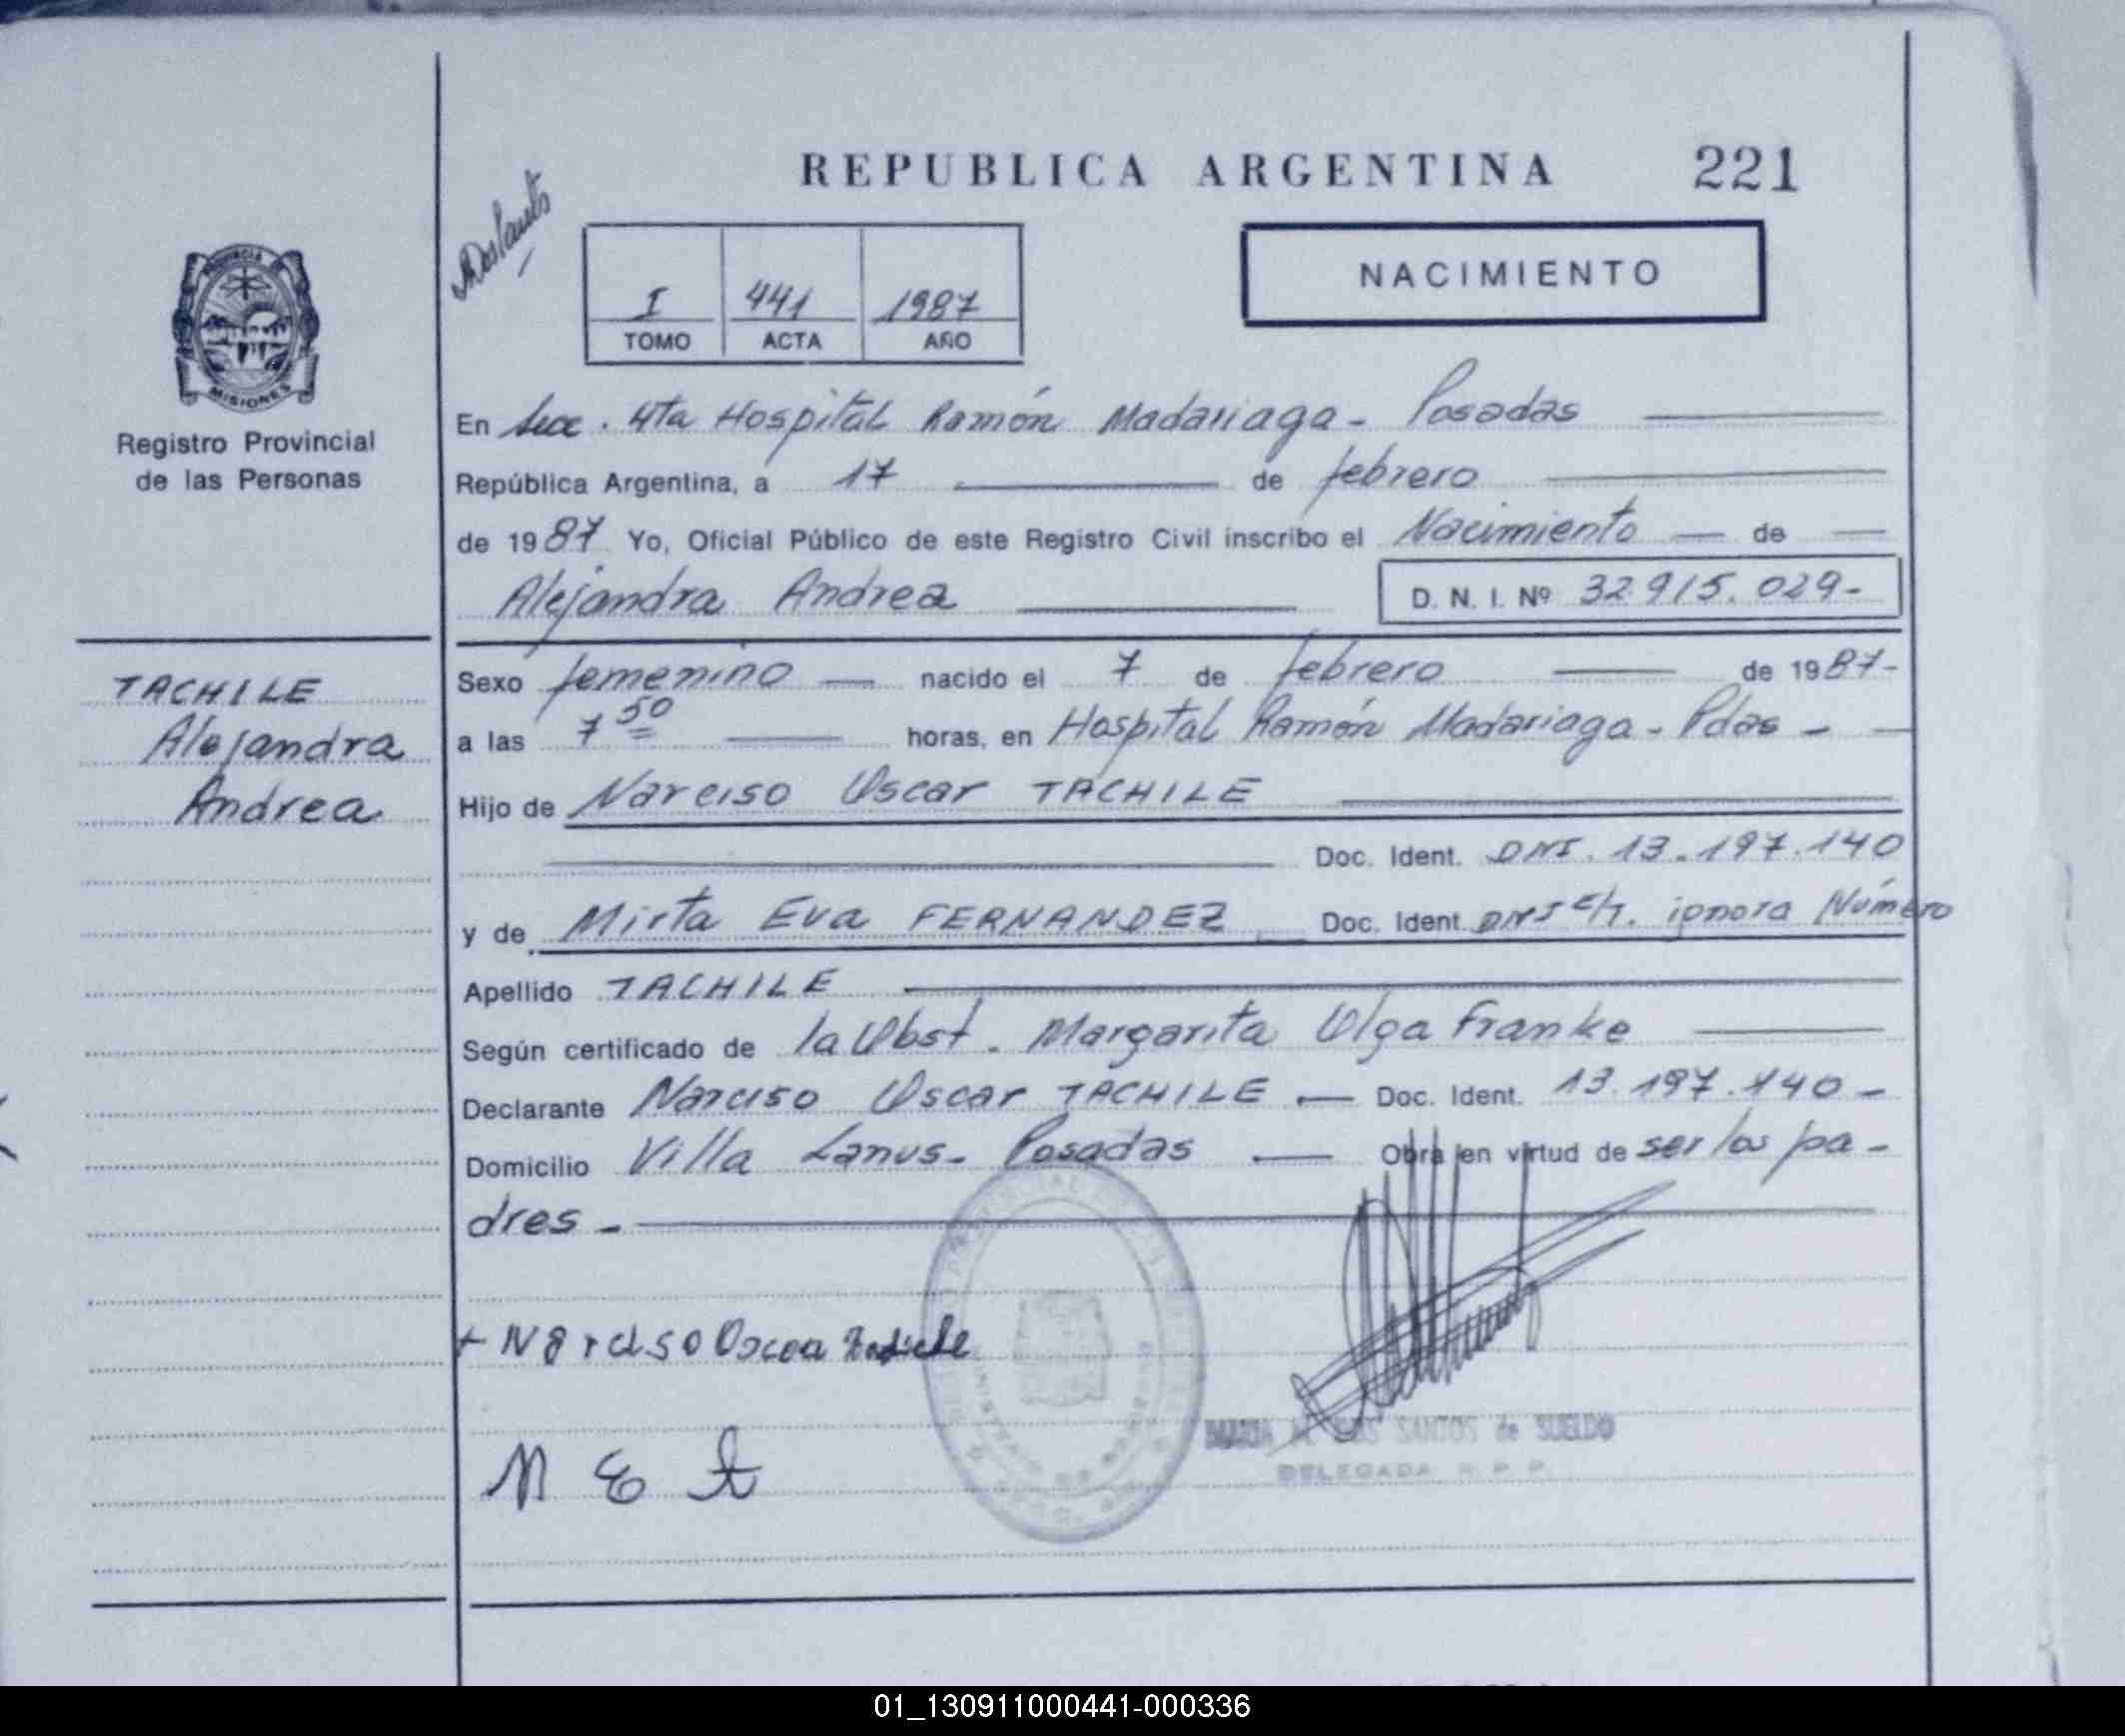 REPUBLICA ARGENTINA 221
I 441 1987
TOMO ACTA AÑO
NACIMIENTO
PROVINCIA DE
MISIONES
Registro Provincial
de las Personas
En Secc. 4ta Hospital Ramón Madariaga - Posadas
República Argentina, a 17 de febrero
de 1987 Yo, Oficial Público de este Registro Civil inscribo el Nacimiento de
Alejandra Andrea D. N. I. Nº 32.915.029-
TACHILE
Alejandra
Andrea
Sexo femenino nacido el 7 de febrero de 1987-
a las 7 50 horas, en Hospital Ramón Madariaga - Pdas -
Hijo de Narciso Oscar TACHILE
Doc. Ident. DNI. 13.197.140
y de Mirta Eva FERNANDEZ Doc. Ident. DNI c/t. ignora Número
Apellido TACHILE
Según certificado de la Obst. Margarita Olga Franke
Declarante Narciso Oscar TACHILE - Doc. Ident. 13.197.140 -
Domicilio Villa Lanus - Posadas Obra en virtud de ser los pa-
dres -
+ Narciso Oscar
M E t
MARIA DOS SANTOS de SUELDO
DELEGADA R. P. P.
01_130911000441-000336